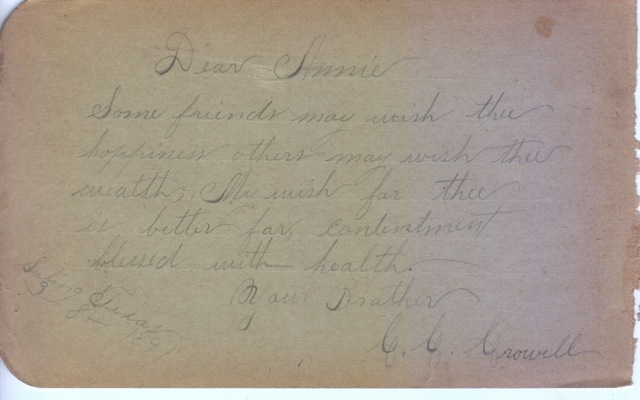 Dear Annie
Some friends may wish thee
happiness others may wish thee
wealth; My wish for thee
is better far, contentment
blessed with health.
Your Brother
C. C. Crowell
Texas